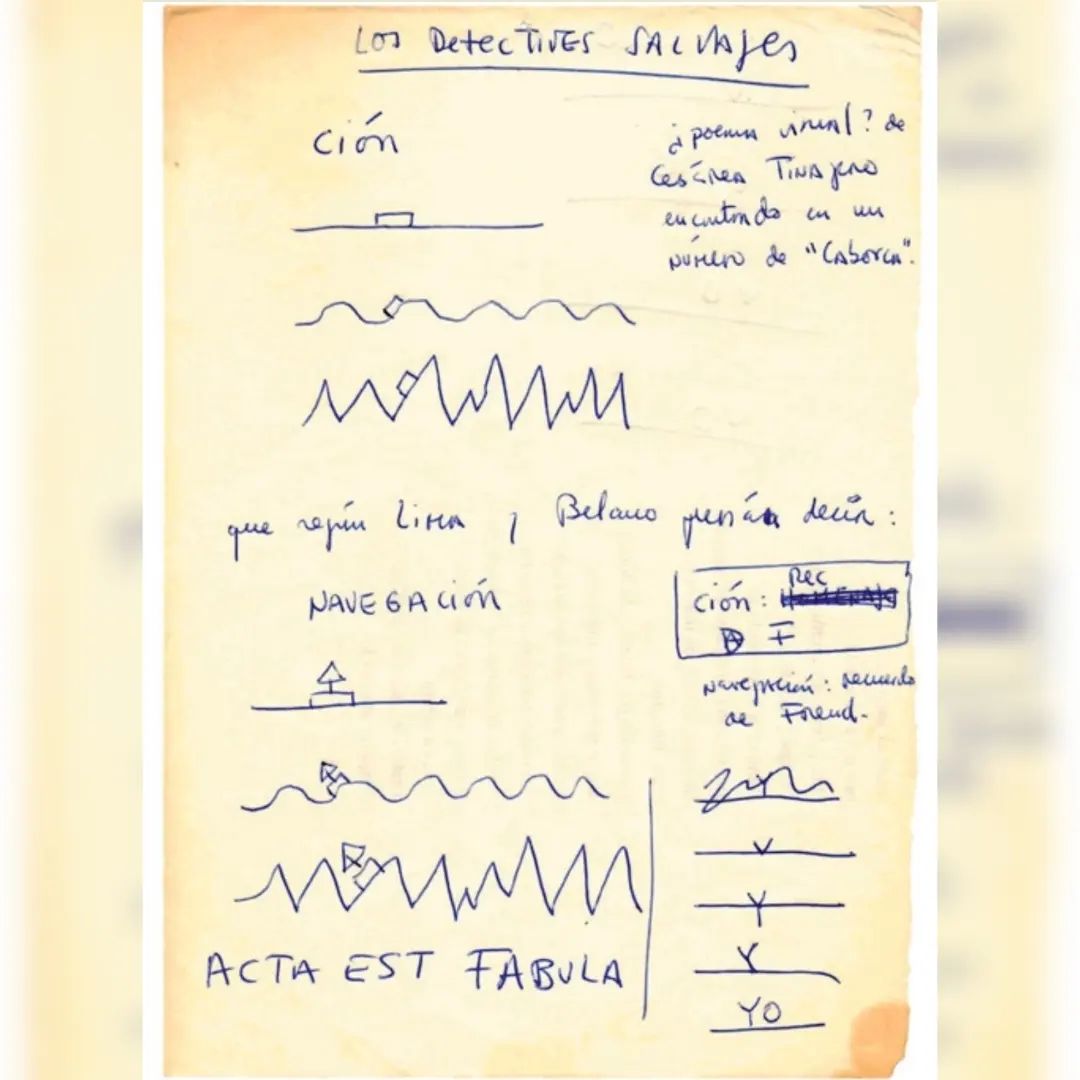 LOS DETECTIVES SALVAJES
Ción
¿poema visual? de
Cesárea Tinajero
encontrado en un
número de "Caborca".
que según Lima y Belano quería decir:
NAVEGACIÓN
Rec
Ción: HOMENAJE
A F
Navegación: recuerdo
de Freud.
Y
Y
YO
ACTA EST FABULA